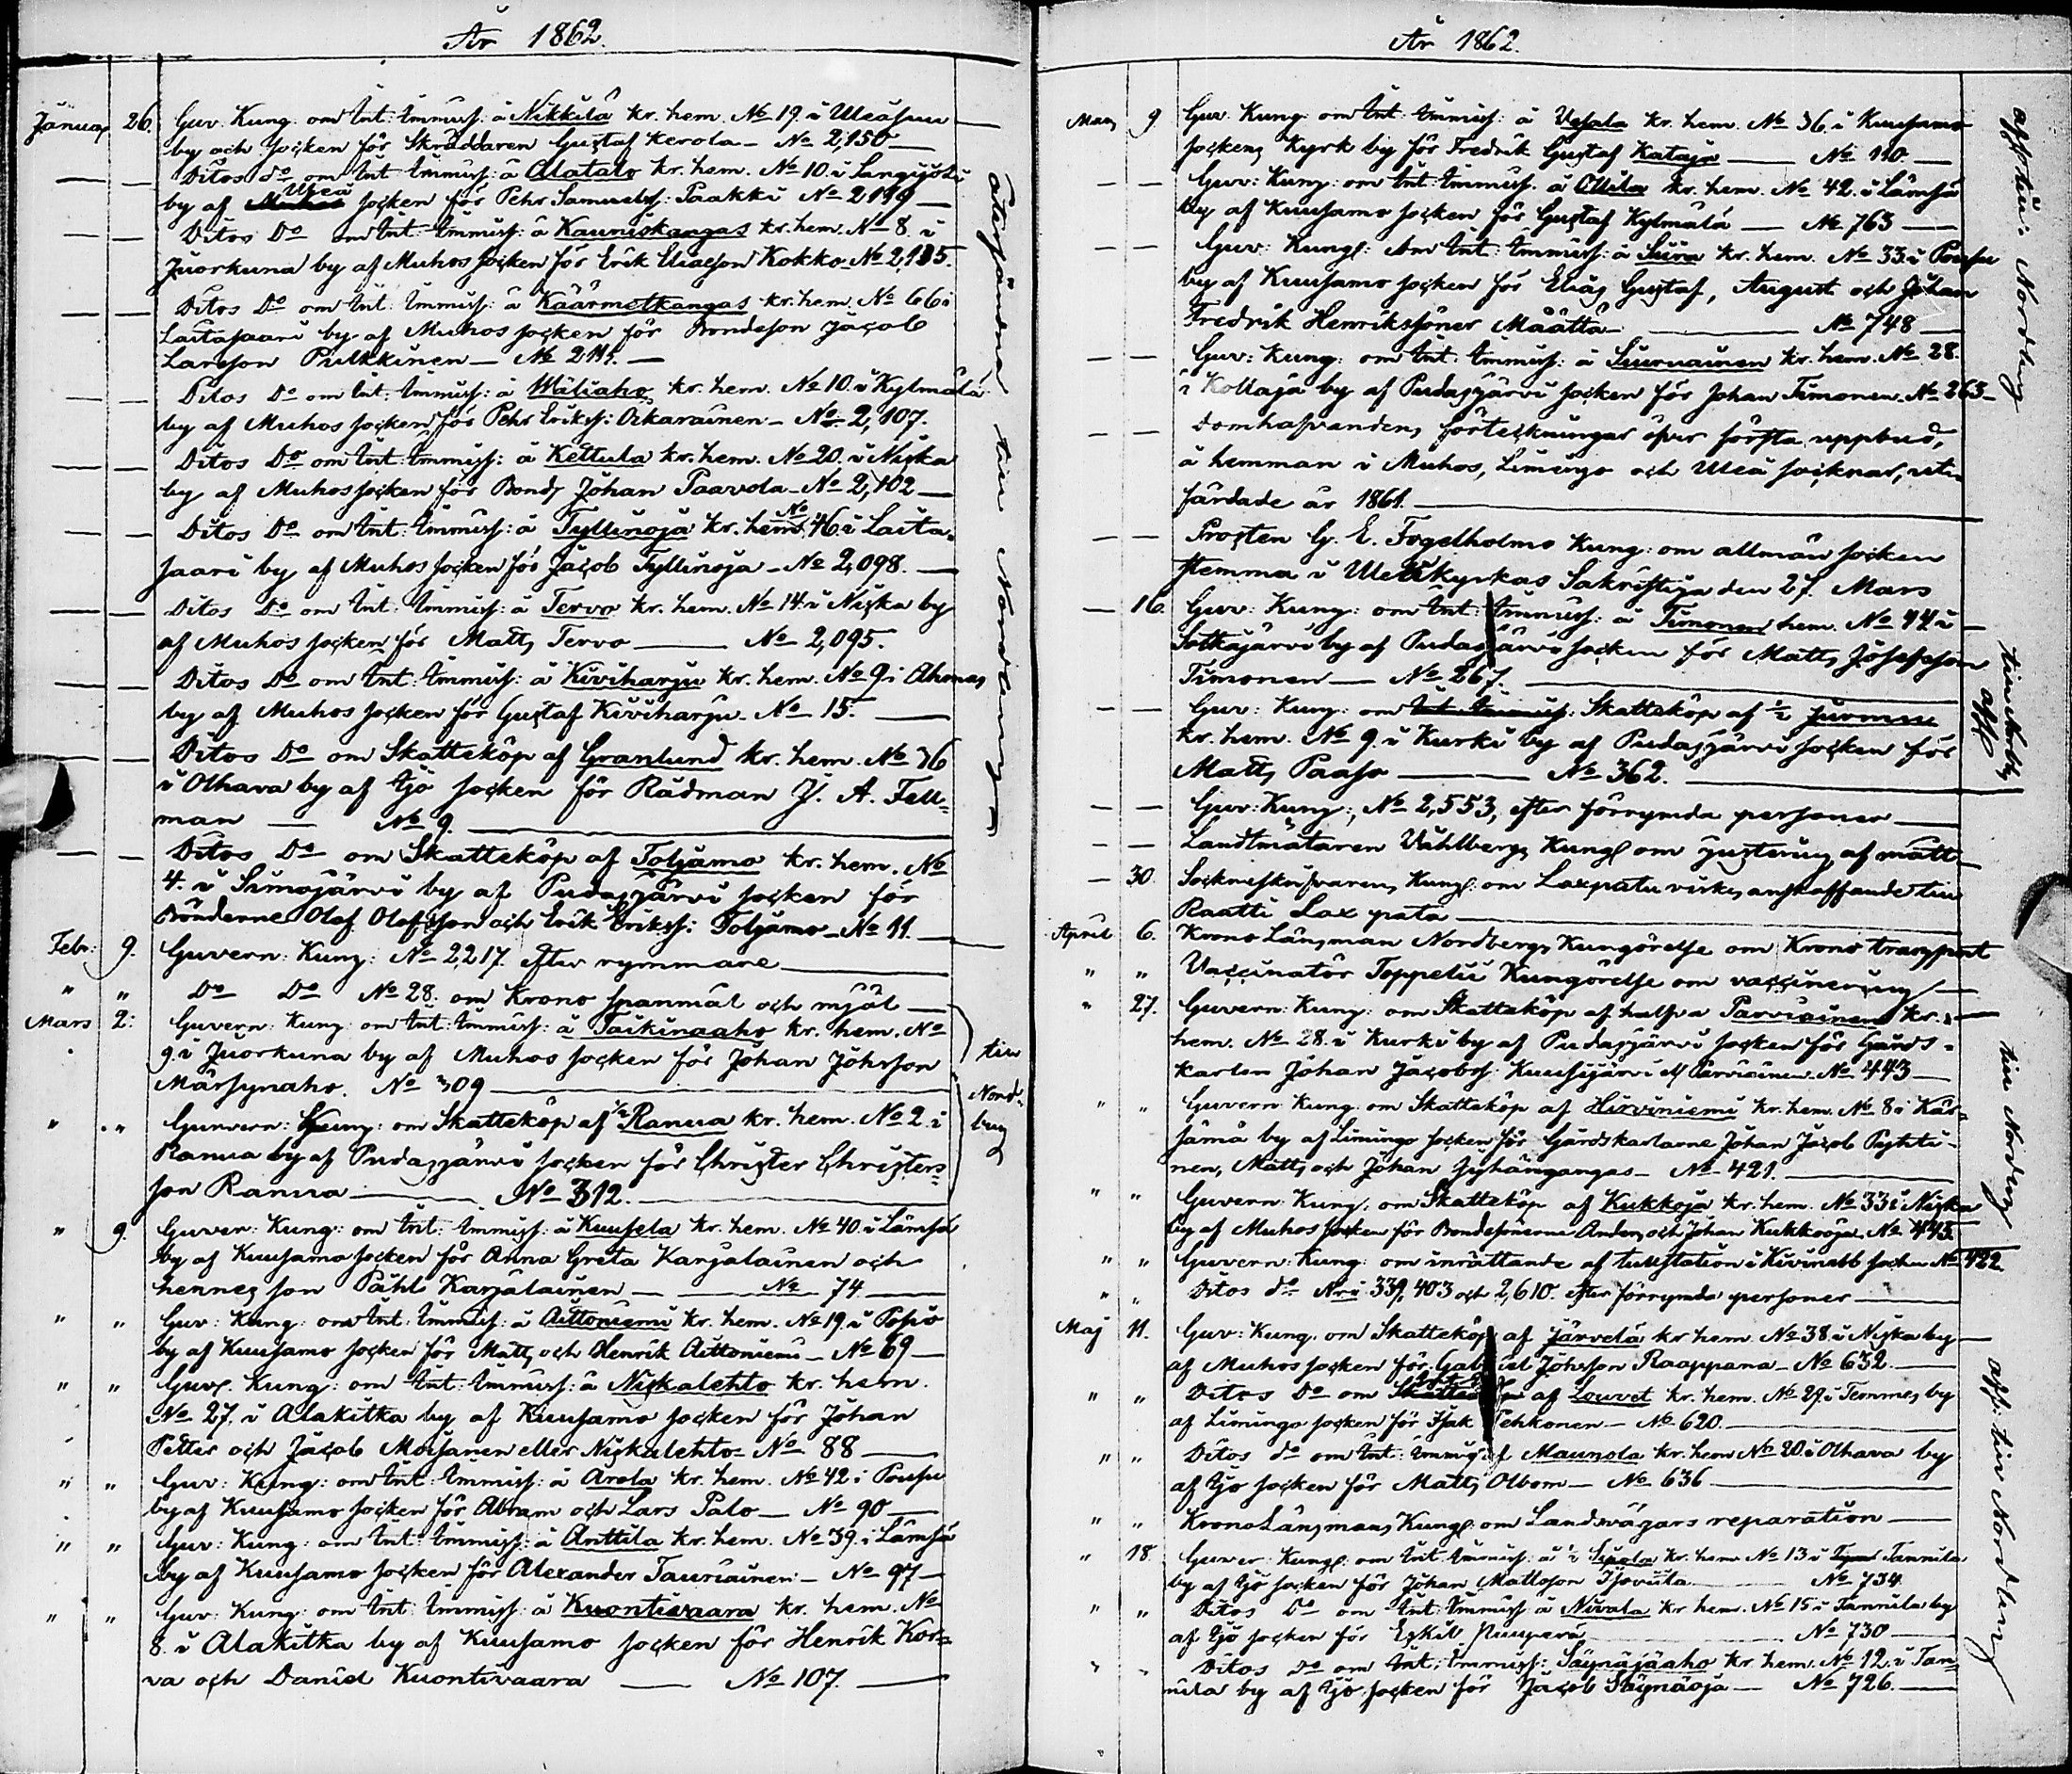 År 1862.
Januar 26. Guv. Kung. om Int. Immiss. å Nikkilä kr. hem. No 19. i Uleåsuu
by och socken för Skräddaren Gustaf Kerola - No 2,150 -
Ditos do om Int. Immiss: å Alatalo kr. hem. No 10. i
Uleå
by af socken för Pehr Samuelss: Paakki No 2149 -
Ditos Do om Int. Immiss: å Kauniskangas kr. hem. No 8. i
Juorkuna by af Muhos socken för Erik Eliasson Kokko - No 2,135.
Ditos Do om Int. Immiss: å Käärmetkangas kr. hem. No 66 i
Laitasaari by af Muhos socken för Bondeson Jacob
Larsson Pulkkinen - No 2111. -
Ditos Do om Int. Immiss: å Mäliaho kr. hem. No 10. i Kylmälä
by af Muhos socken för Pehr Erikss: Oikarainen - No 2,107.
Ditos Do om Int. Immiss: å Kettula kr. hem. No 20. i Niska
by af Muhos socken för Bond. Johan Paavola - No 2,102 -
Ditos Do om Int. Immiss: å Tyllinoja kr. hem. No 46 i Laita-
saari by af Muhos socken för Jacob Tyllinoja - No 2,098. -
Ditos Do om Int. Immiss: å Tervo kr. hem. No 14. i Niska by
af Muhos socken för Matts Tervo - No 2,095.
Ditos Do om Int. Immiss: å Kiviharju kr. hem. No 9 i Ahmas
by af Muhos socken för Gustaf Kiviharju - No 15. -
Ditos Do om Skatteköp af Granlund kr. hem. No 36
i Olhava by af Ijo socken för Rådman J. A. Fell-
man - No 9. -
Ditos Do om Skatteköp af Toljamo kr. hem. No
4. i Simojärvi by af Pudasjärvi socken för
Bönderne Olof Olofsson och Erik Erikss: Toljamo - No 11. -
Febr: 9. Guvern: Kung: No 2217. efter rymmare -
" " Do Do No 28. om Krono spanmål och mjöl -
Mars 2. Guvern: Kung. om Int. Immiss: å Taikinaaho kr. hem. No
9 i Juorkuna by af Muhos socken för Johan Johsson
Märsynaho. No 309 -
" " Gunvern: Kung: om Skatteköp af 1/2 Ranua kr. hem. No 2. i
Ranua by af Pudasjärvi socken för Christer Christers-
son Ranua - No 312. -
" 9. Guver: Kung: om Int. Immiss. å Kuusela kr. hem. No 40. i Lämsä
by af Kuusamo socken för Anna Greta Karjalainen och
hennes son Påhl Karjalainen - No 74 -
" " Guv: Kung: om Int. Immiss: å Aittoniemi kr. hem. No 19. i Posio
by af Kuusamo socken för Matts och Henrik Aittoniemi - No 69 -
" " Guv. Kung: om Int. Immiss: å Niskalehto kr. hem.
No 27. i Alakitka by af Kuusamo socken för Johan
Petter och Jacob Moisanen eller Niskalehto - No 88 -
" " Guv: Kung: om Int. Immiss: å Arola kr. hem. No 42. i Poussu
by af Kuusamo socken för Abram och Lars Palo - No 90 -
" " Guv: Kung: om Int. Immiss: å Anttila kr. hem. No 39. i Lämsä
by af Kuusamo socken för Alexander Tauriainen - No 97 -
" " Guv: Kung: om Int. Immiss: å Kuontivaara kr. hem. No
8. i Alakitka by af Kuusamo socken för Henrik Kor-
va och Daniel Kuontivaara - No 107. -
till
Nord-
berg
År 1862.
Mars 9 Guv. Kung. om Int. Immiss: å Vesala kr. hem. No 36. i Kuusamo
sockens Kyrk by för Fredrik Gustaf Kataja - No 110 -
Guv: Kung: om Int. Immiss: å Ollila kr. hem. No 42. i Lämsä
by af Kuusamo socken för Gustaf Kylmälä - No 763 -
Guv: Kung: om Int. Immiss: å Siira kr. hem. No 33. i Poussu
by af Kuusamo socken för Elias Gustaf, August och Johan
Fredrik Henrikssöner Määttä - No 748 -
Guv: Kung: om Int. Immiss: å Suurnainen kr. hem. No 28.
i Kollaja by af Pudasjärvi socken för Johan Timonen No 263 -
Domhafvandens förteckningar öfver första uppbud,
å hemman i Muhos, Limingo och Uleå socknar, ut-
färdade år 1861. -
Prosten G. E. Fogelholms Kung: om allmän socken
stemma i Uleåkyrkas Sakristija den 27. Mars
- 16. Guv: Kung: om Int. Immiss: å Timonen hem. No 44 i
Sotkajärvi by af Pudasjärvi socken för Matts Josefsson
Timonen - No 267. -
Guv: Kung: om Int. Immiss: Skatteköp af 1/2 Jurmu
kr. hem. No 9. i Kurki by af Pudasjärvi socken för
Matts Paaso - No 362. -
Guv: Kung:, No 2,553, efter förrymda personer -
Landtmätaren Wahlbergs Kung. om justering af mått -
- 30. Sockneskrifvarens Kung: om Laxpatu virkes anskaffande till
Raatti Lax pata -
April 6. Krono Länsman Nordbergs Kungörelse om Krono transport
" " Vaccinatör Toppelii Kungörelse om vaccinering -
" 27. Guvern: Kung: om Skatteköp af halfva Parviainen kr.
hem. No 28. i Kurki by af Pudasjärvi socken för Gårds-
karlen Johan Jacobss: Kuusijärvi ell. Parviainen No 443 -
" " Guvern Kung: om Skatteköp af Hirviniemi kr. hem. No 8 i Kär-
sämä by af Limingo socken för Gårdskarlarne Johan Jacob
nen, Matts och Johan - No 421. -
" " Guvern: Kung. om Skatteköp af Kukkoja kr. hem. No 33 i Niska
by af Muhos socken för Bondesönerna Anders och Johan Kukkooja. No 445
" " Guvern: Kung: om inrättande af tullstation i Kivinebb socken No 422
" " Ditos do Nri 339, 403 och 2,610. efter förrymda personer -
Maj 11. Guv: Kung: om Skatteköp af Järvelä kr. hem. No 38. i Niska by -
af Muhos socken för Gabriel Johsson Raappana - No 632 -
" " Ditos Do om af Louvet kr. hem. No 29. i Temmes by
af Limingo socken för Isak Pehkonen - No 620. -
" " Ditos do om Int. Immiss. af Maunola kr. hem No 20. i Olhava by
af Ijo socken för Matts Olbom - No 636 -
" " Krono Länsmans Kung: om Landsvägars reparation -
" 18. Guver: Kung: om Int. Immiss: å 1/2 Sipola kr. hem No 13. i Tannila
by af Ijo socken för Johan Mattsson Isoviita - No 734
" " Ditos Do om Int. Immiss å Nivala kr. hem. No 15 i Tannila by
af Ijo socken för Eskil - No 730 -
" " Ditos Do om Int. Immiss: Säynäjäaho kr. hem. No 12. i Tan-
nila by af Ijo socken för Jacob Säynäoja - No 726. -
till Nordberg